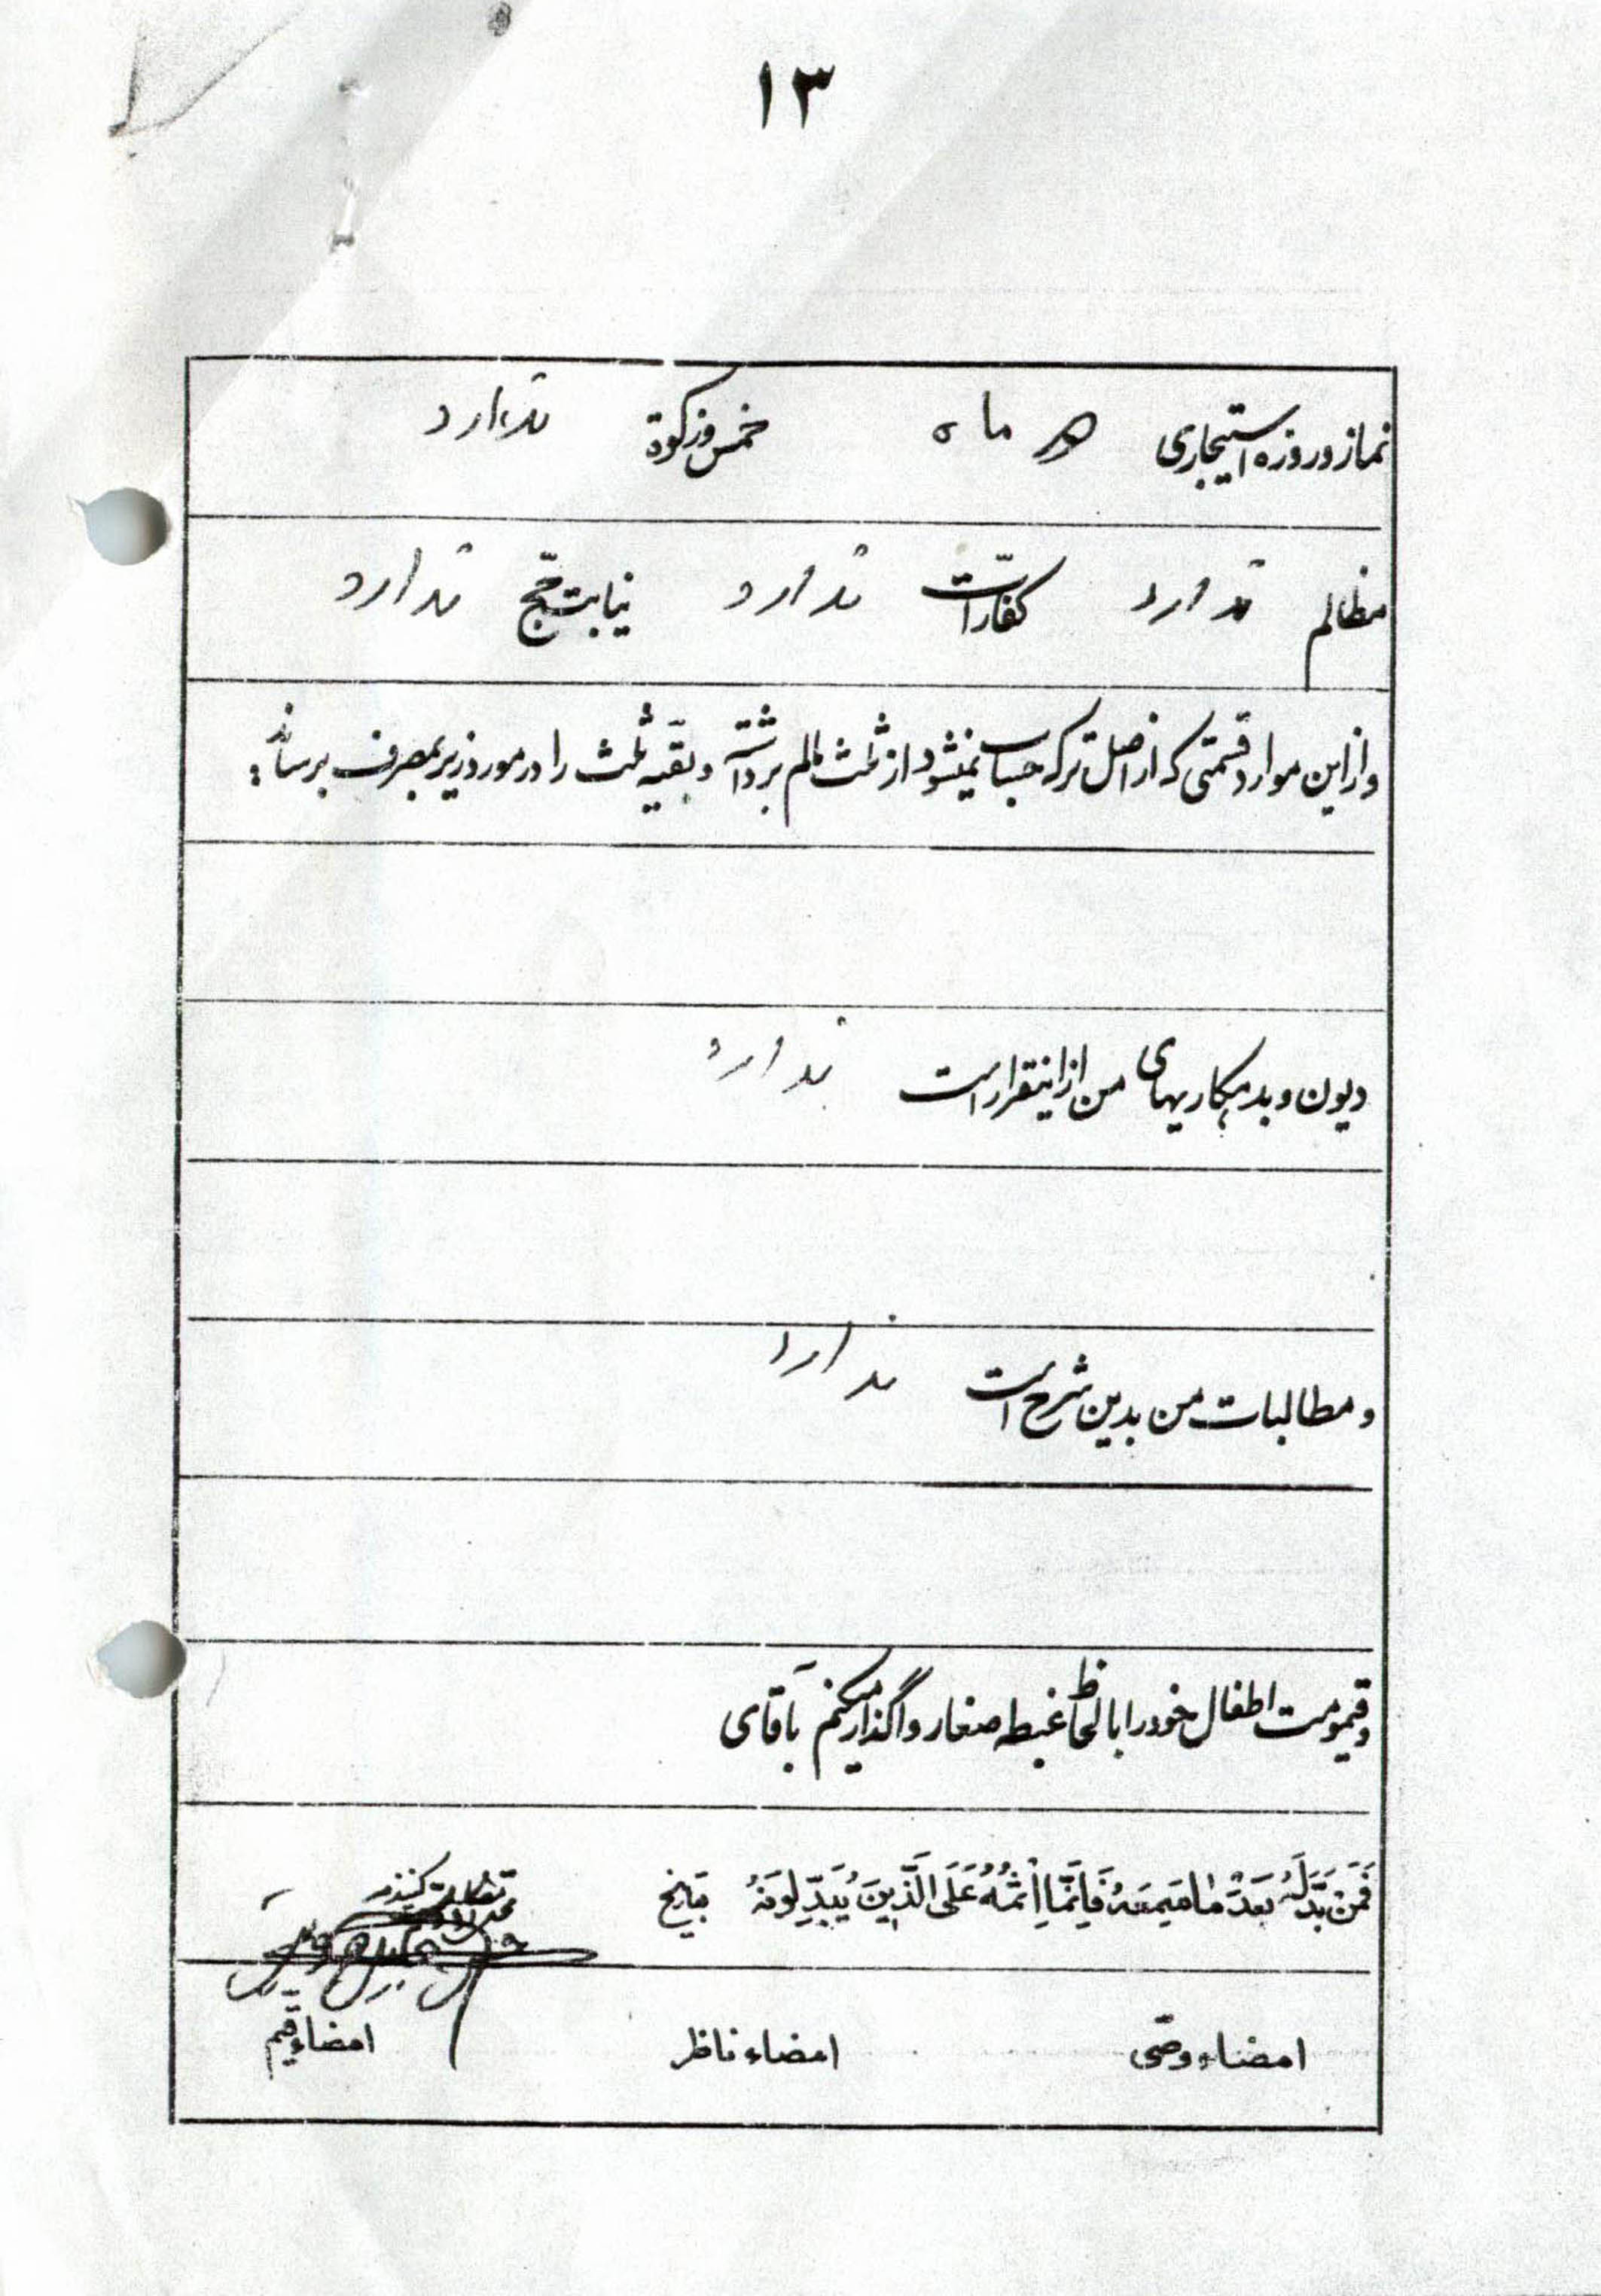 ۱۳
نماز و روزه استیجاری ۵ ماه خمس و زکوة ندارد
مظالم ندارد کفّارات ندارد نیابت حجّ ندارد
و از این موارد قسمتی که از اصل ترکه حساب نمیشود از ثلث مالم برداشته و بقیّه ثلث را در موارد زیر بمصرف برساند:
دیون و بدهکاریهای من از اینقرار است ندارد
و مطالبات من بدین شرح است ندارد
و قیمومت اطفال خود را با لحاظ غبطه صغار واگذار میکنم بآقای
فَمَنْ بَدَّلَهُ بَعْدَ مٰا سَمِعَهُ فَاِنَّمٰا اِثْمُهُ عَلَی الَّذینَ یُبَدِّلُونَهُ بتاریخ
امضاء وصّی امضاء ناظر امضاء قیّم